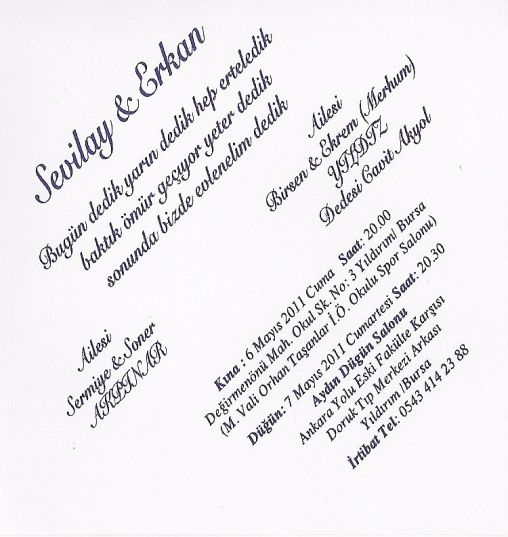 Sevilay & Erkan
Bugün dedik yarın dedik hep erteledik
baktık ömür geçiyor yeter dedik
sonunda bizde evlenelim dedik
Ailesi
Birsen & Ekrem (Merhum)
YILDIZ
Dedesi Cavit Akyol
Ailesi
Sermiye & Soner
AKPINAR
Kına : 6 Mayıs 2011 Cuma Saat: 20.00
Değirmenönü Mah. Okul Sk. No: 3 Yıldırım/ Bursa
(M. Vali Orhan Taşanlar İ.Ö. Okulu Spor Salonu)
Düğün: 7 Mayıs 2011 Cumartesi Saat: 20.30
Aydın Düğün Salonu
Ankara Yolu Eski Fakülte Karşısı
Doruk Tıp Merkezi Arkası
Yıldırım /Bursa
İrtibat Tel: 0543 414 23 88